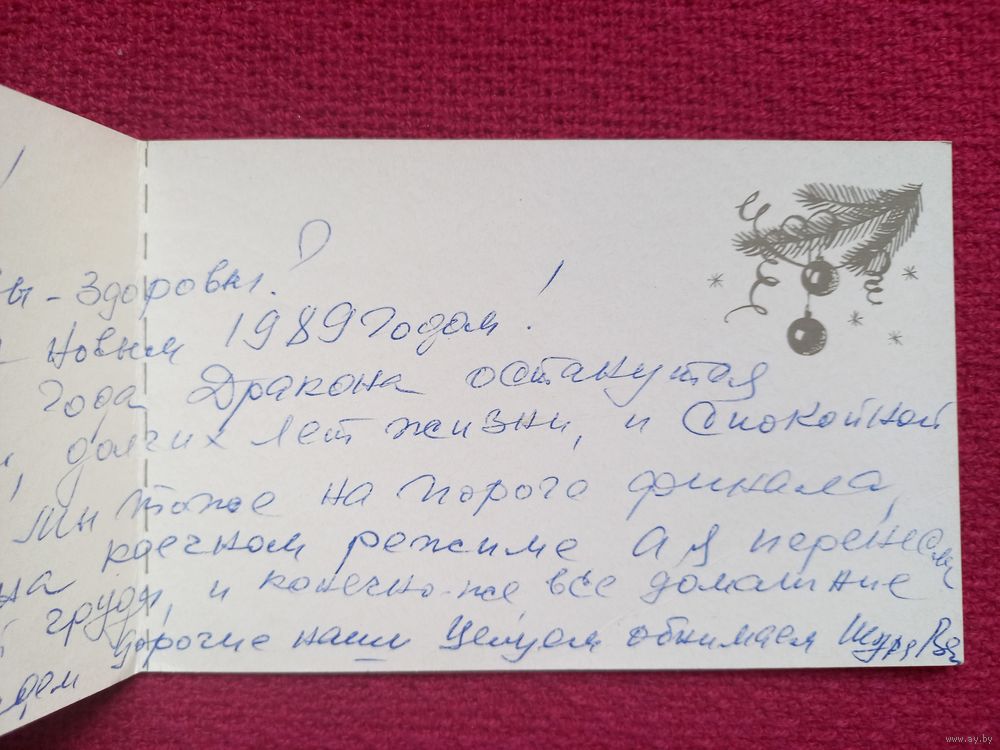 !
- Здоровы!
Новым 1989 годом!
года Дракона останутся
долгих лет жизни, и спокойной
Мы тоже на пороге финала,
на коечном режиме а я перенес
груди, и конечно-же все домашние
дорогие наши Целуем обнимаем Шура
www.ay.by